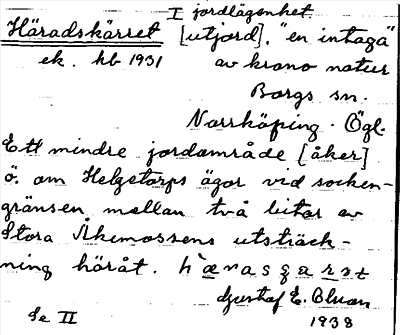 I jordlägenhet
Häradskärret [utjord]. "en intaga"
ek. kb 1931 av krono natur
Borgs sn.
Norrköping. Ögl.
Ett mindre jordområde [åker]
ö. om Helgetorps ägor vid socken-
gränsen mellan två bitar av
Stora Åkemossens utsträck-
ning häråt.
Gustaf E. Bluan
Se II 1938